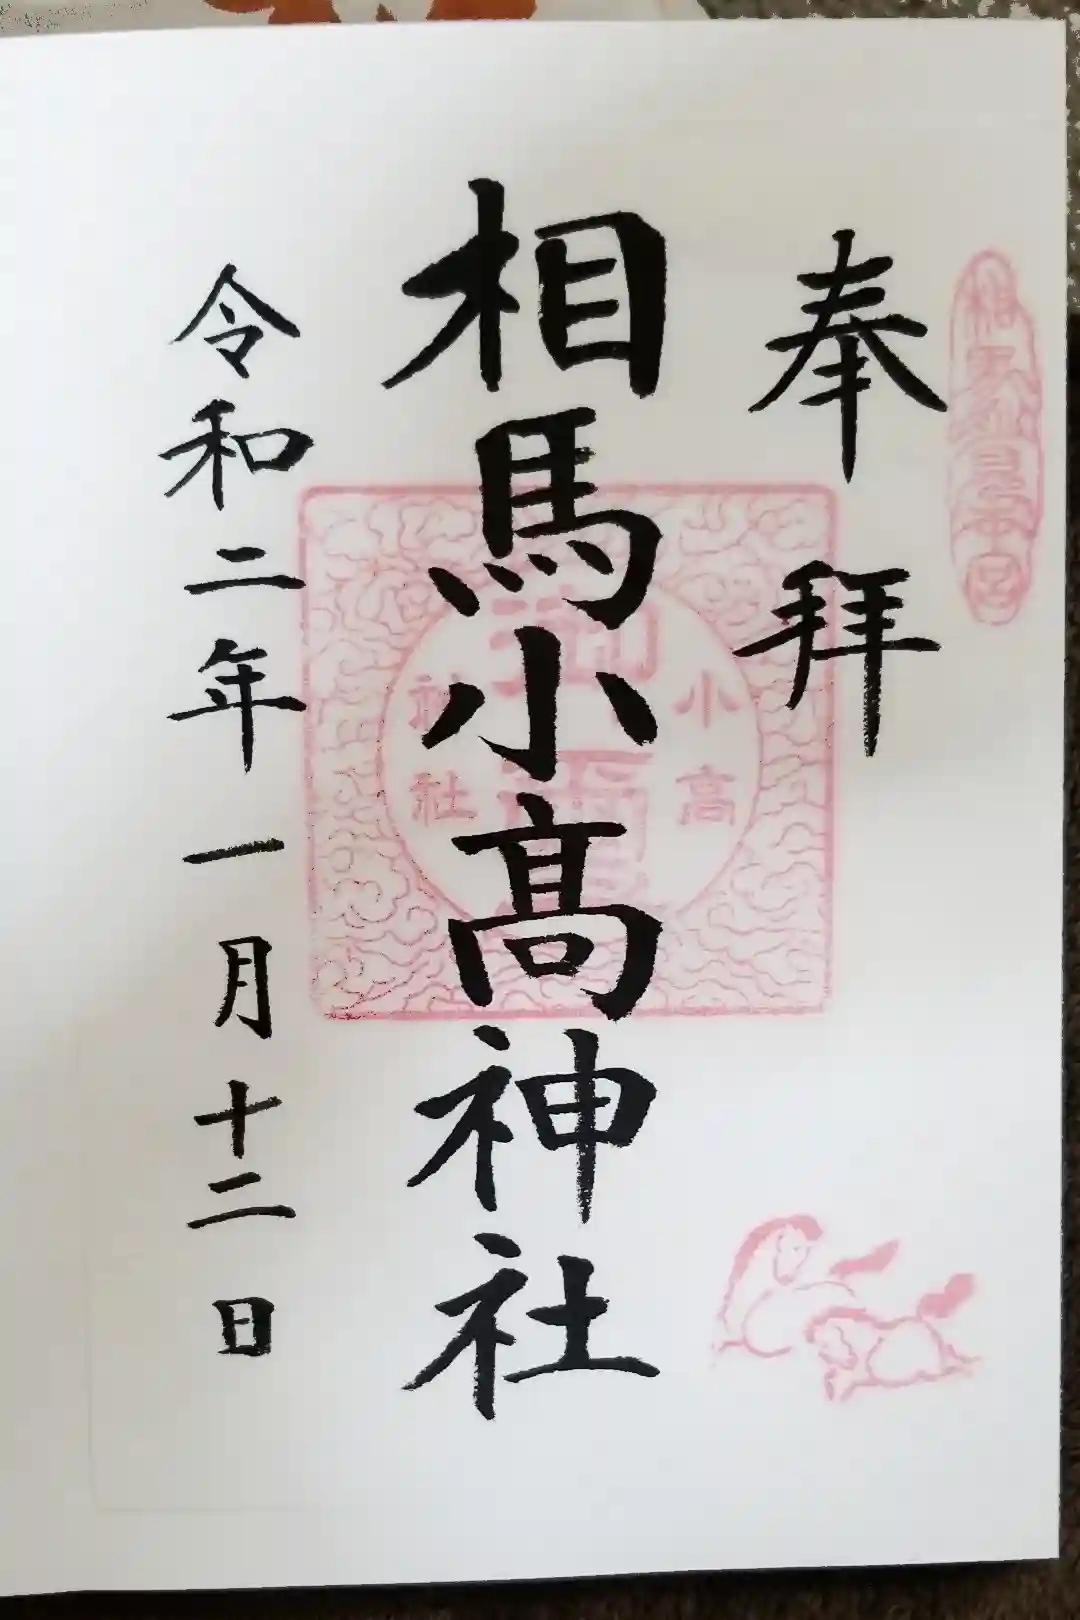 奉拝
相馬小高神社
令和二年一月十二日
小高
神社